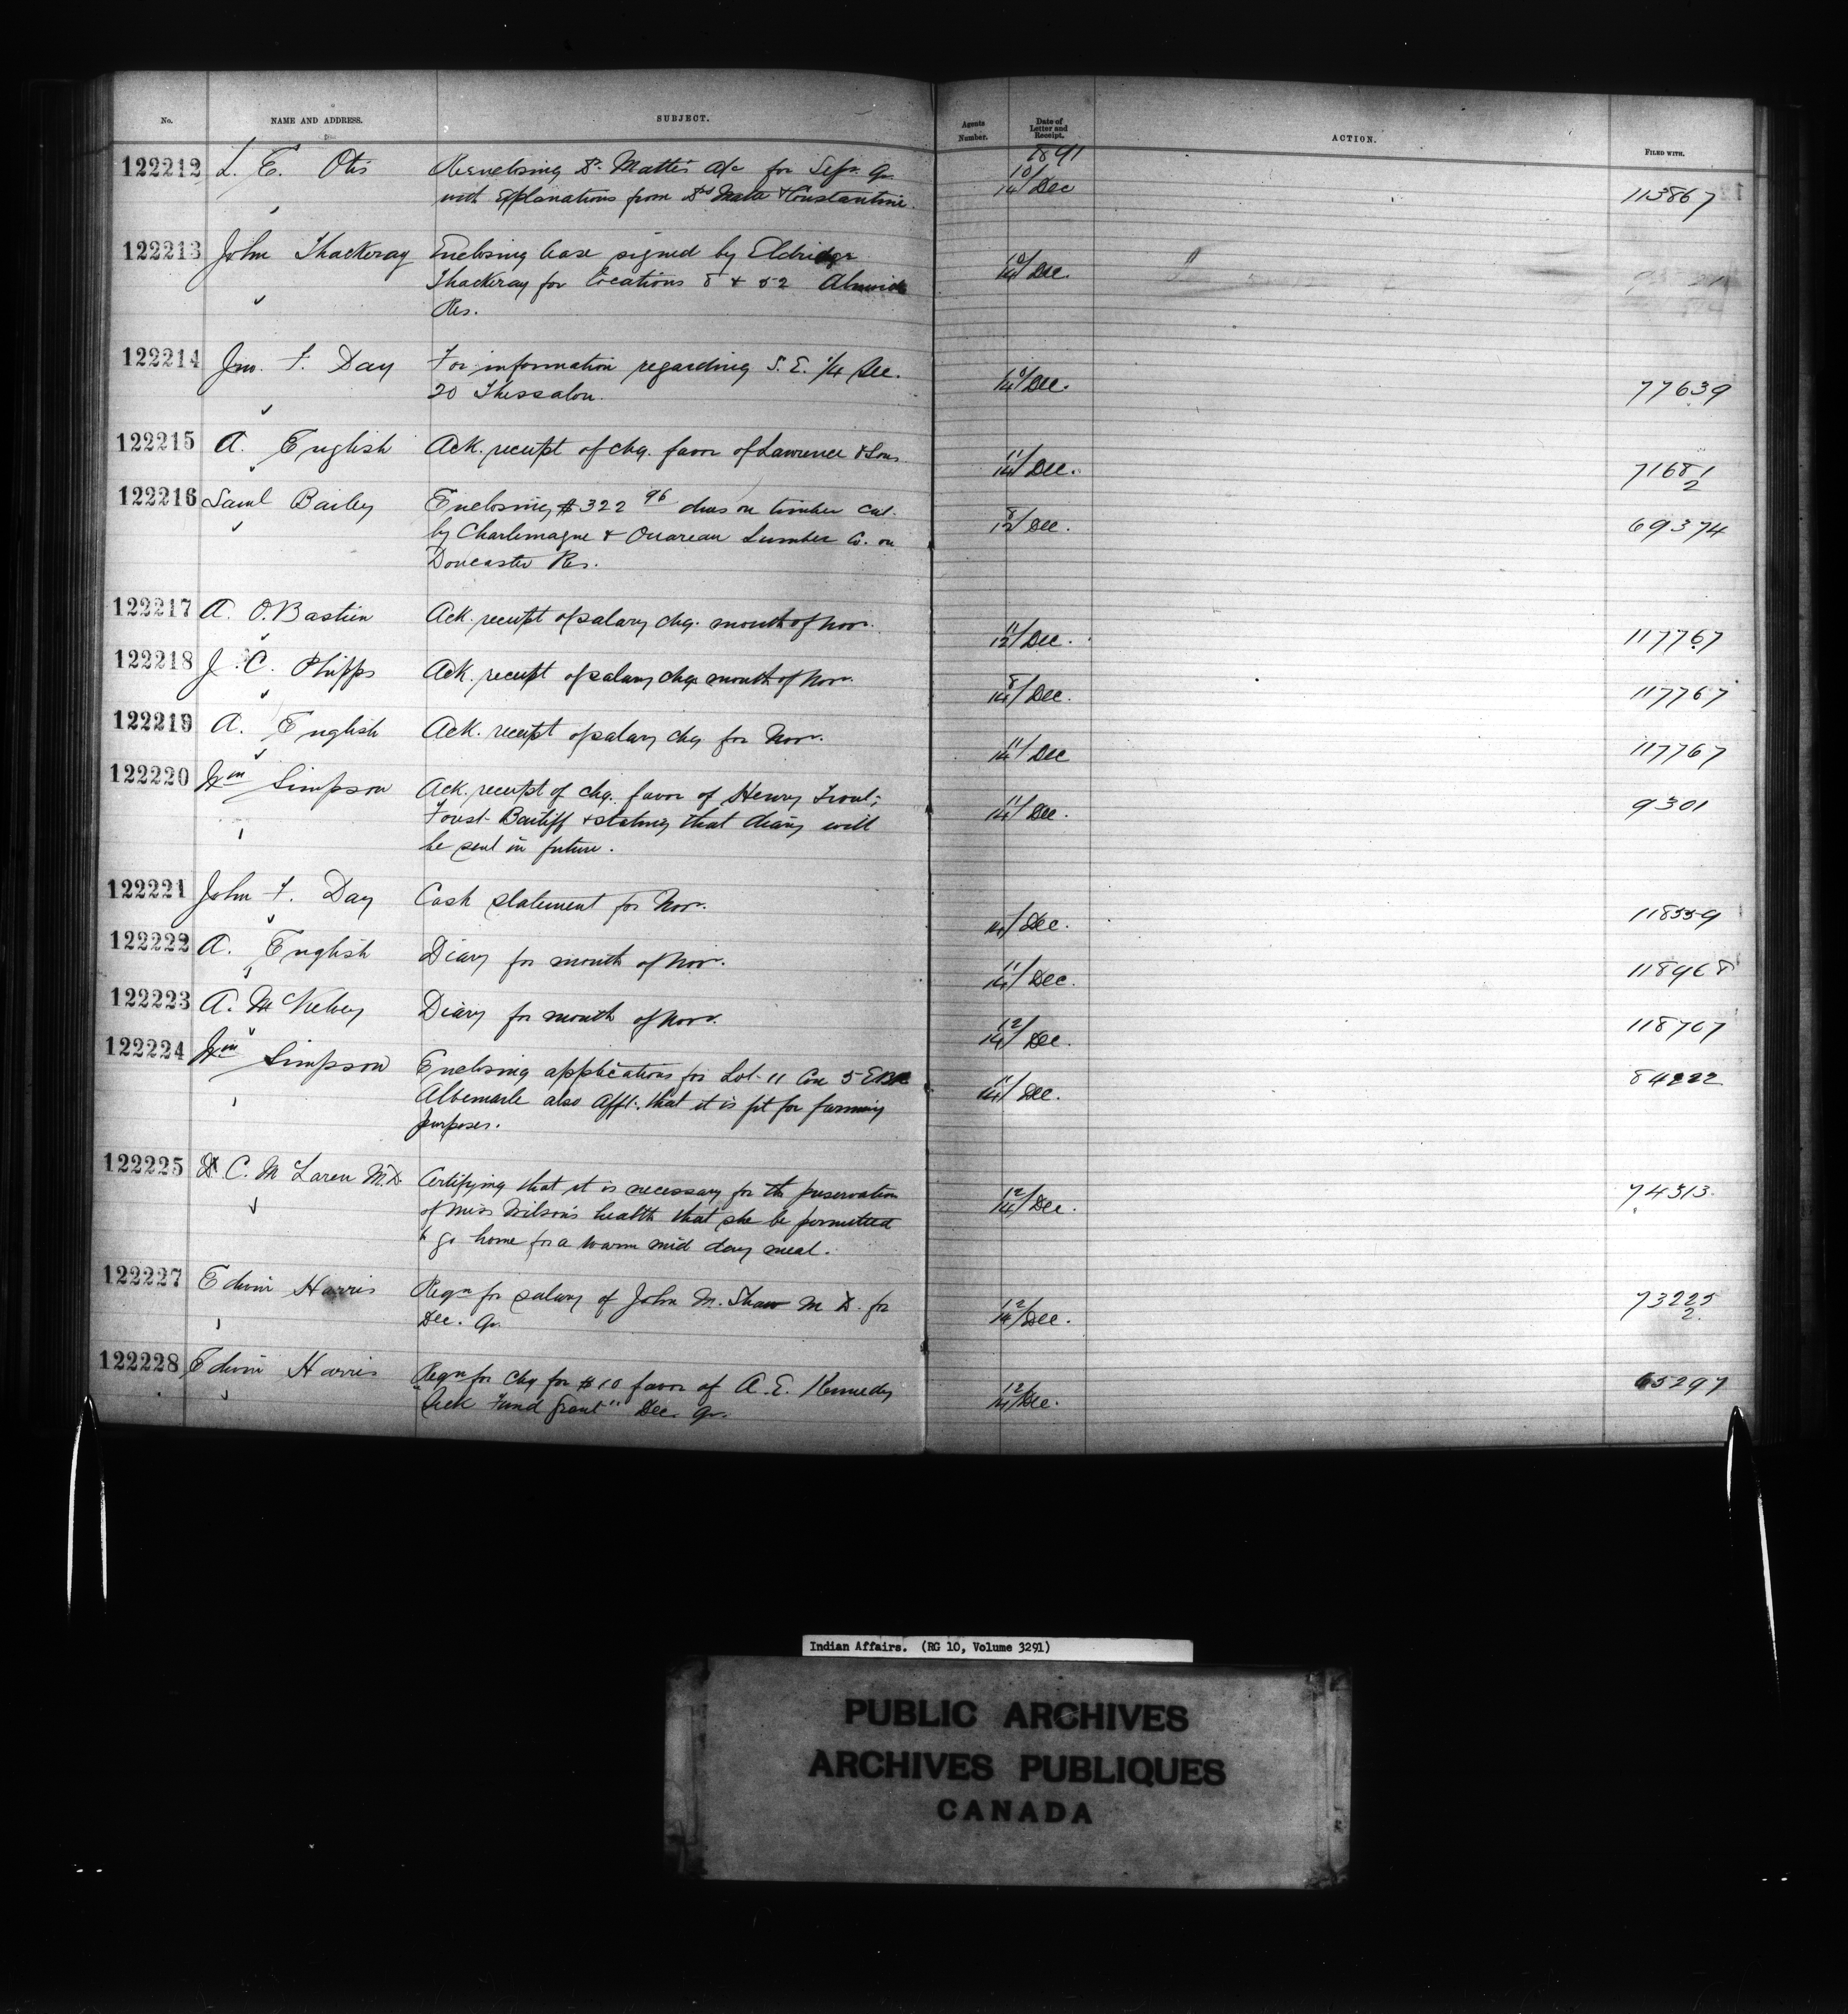 No. NAME AND ADDRESS. SUBJECT. Agents Number. Date of Letter and Receipt. ACTION. FILED WITH.
1891
122212 L. E. Otis Re-enclosing Dr. Matte's a/c for Sepr. Qr. 10/14 Dec 113867
with explanations from Drs Matte & Constantine.
122213 John Thackeray Enclosing lease signed by Eldridge 10/14 Dec.
Thackeray for locations 8 & 52 Alnwick
Res.
122214 Jno. F. Day For information regarding S. E. 1/4 Sec. 10/14 Dec. 77639
20 Thessalon.
122215 A. English Ack. receipt of chq. favor of Lawrence & Sons 11/14 Dec. 71681/2
122216 Saml Bailey Enclosing $322 96 dues on timber cut 8/12 Dec. 69374
by Charlemagne & Ouareau Lumber Co. on
Doncaster Res.
122217 A. O. Bastien Ack. receipt of salary chq. month of Novr. 11/12 Dec. 117767
122218 J. C. Phipps Ack. receipt of salary chq. month of Novr. 8/14 Dec. 117767
122219 A. English Ack. receipt of salary chq for Novr. 11/14 Dec 117767
122220 Wm Simpson Ack. receipt of chq. favor of Henry Trout, 11/14 Dec. 9301
Forest Bailiff & stating that diary will
be sent in future.
122221 John F. Day Cash statement for Novr. 14/ Dec. 118559
122222 A. English Diary for month of Novr. 11/14 Dec. 118968
122223 A. McKelvey Diary for month of Novr. 12/14 Dec. 118707
122224 Wm Simpson Enclosing applications for Lot 11 Con 5 EBR 11/14 Dec. 84222
Albemarle also afft. that it is fit for farming
purposes.
122225 D. C. McLaren M.D. Certifying that it is necessary for the preservation 12/14 Dec. 74313
of Miss Wilson's health that she be permitted
to go home for a warm mid day meal.
122227 Edwin Harris Reqn for salary of John M. Shaw M D. for 12/14 Dec. 73225/2
Dec. Qr.
122228 Edwin Harris Reqn for chq for $10 favor of A. E. Kennedy 12/14 Dec. 65297
"Sick Fund Grant" Dec. Qr.
Indian Affairs. (RG 10, Volume 3291)
PUBLIC ARCHIVES
ARCHIVES PUBLIQUES
CANADA